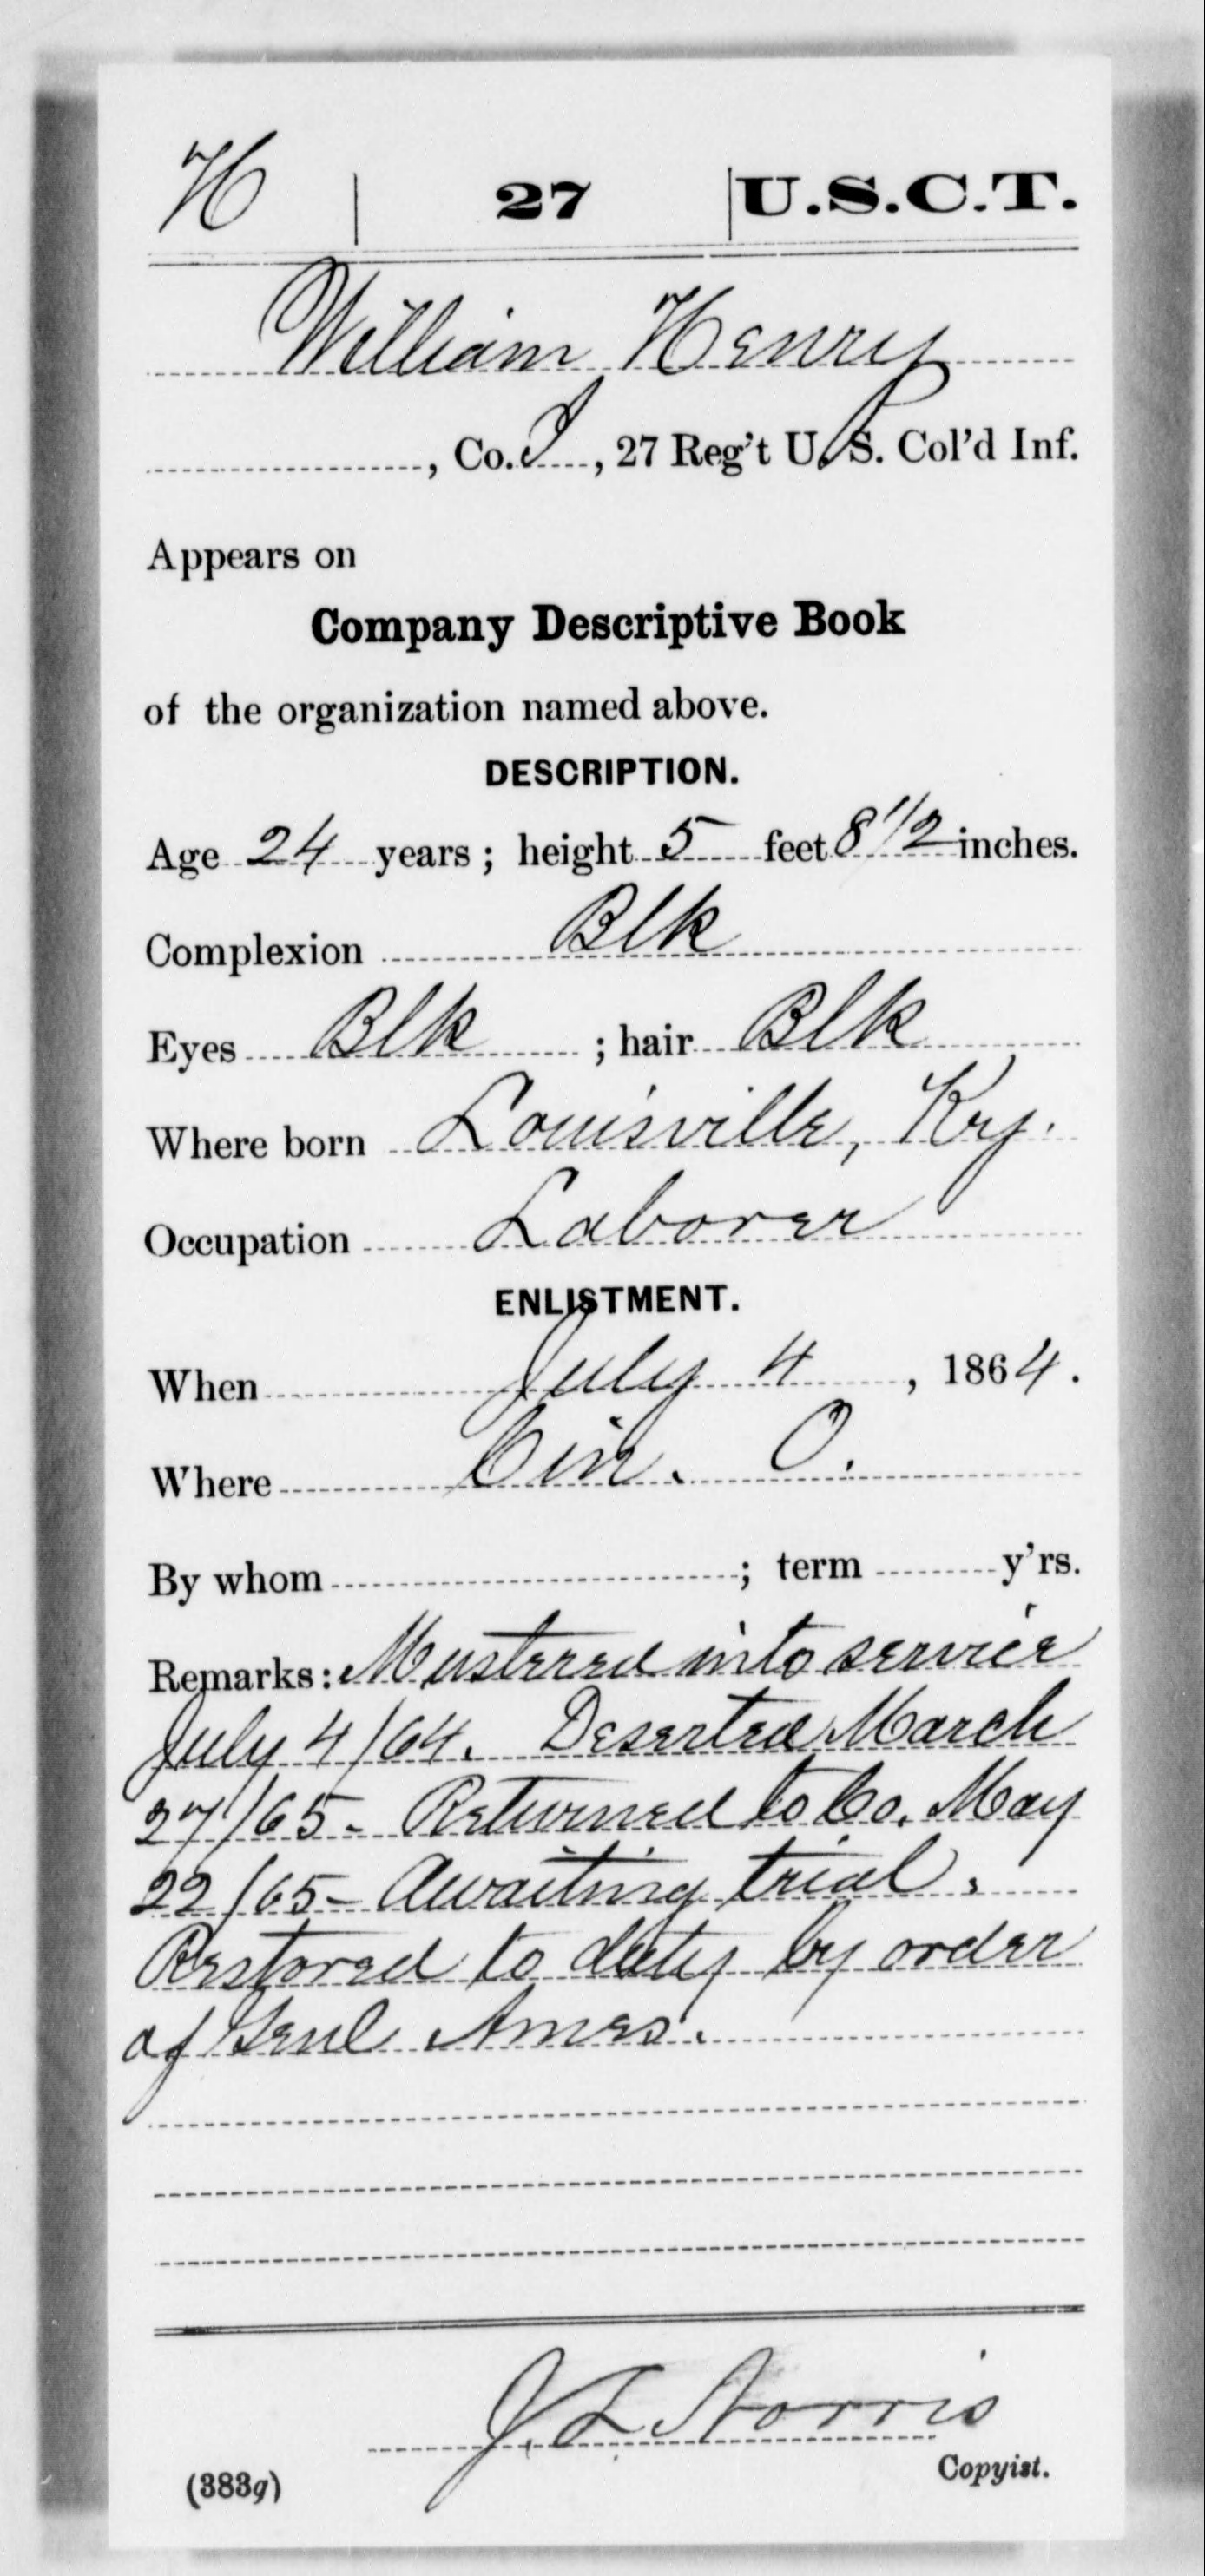 H | 27 | U.S.C.T.
William Henry
, Co. I, 27 Reg't U.S. Col'd Inf.
Appears on
Company Descriptive Book
of the organization named above.
DESCRIPTION.
Age 24 years; height 5 feet 8 1/2 inches.
Complexion Blk
Eyes Blk ; hair Blk
Where born Louisville, Ky.
Occupation Laborer
ENLISTMENT.
When July 4, 1864.
Where Cin. O.
By whom ; term y'rs.
Remarks: Mustered into service
July 4/64. Deserted March
27/65- Returned to Co. May
22/65- Awaiting trial.
Restored to duty by order
of Genl Ames.
J. L. Norris
Copyist.
(383g)